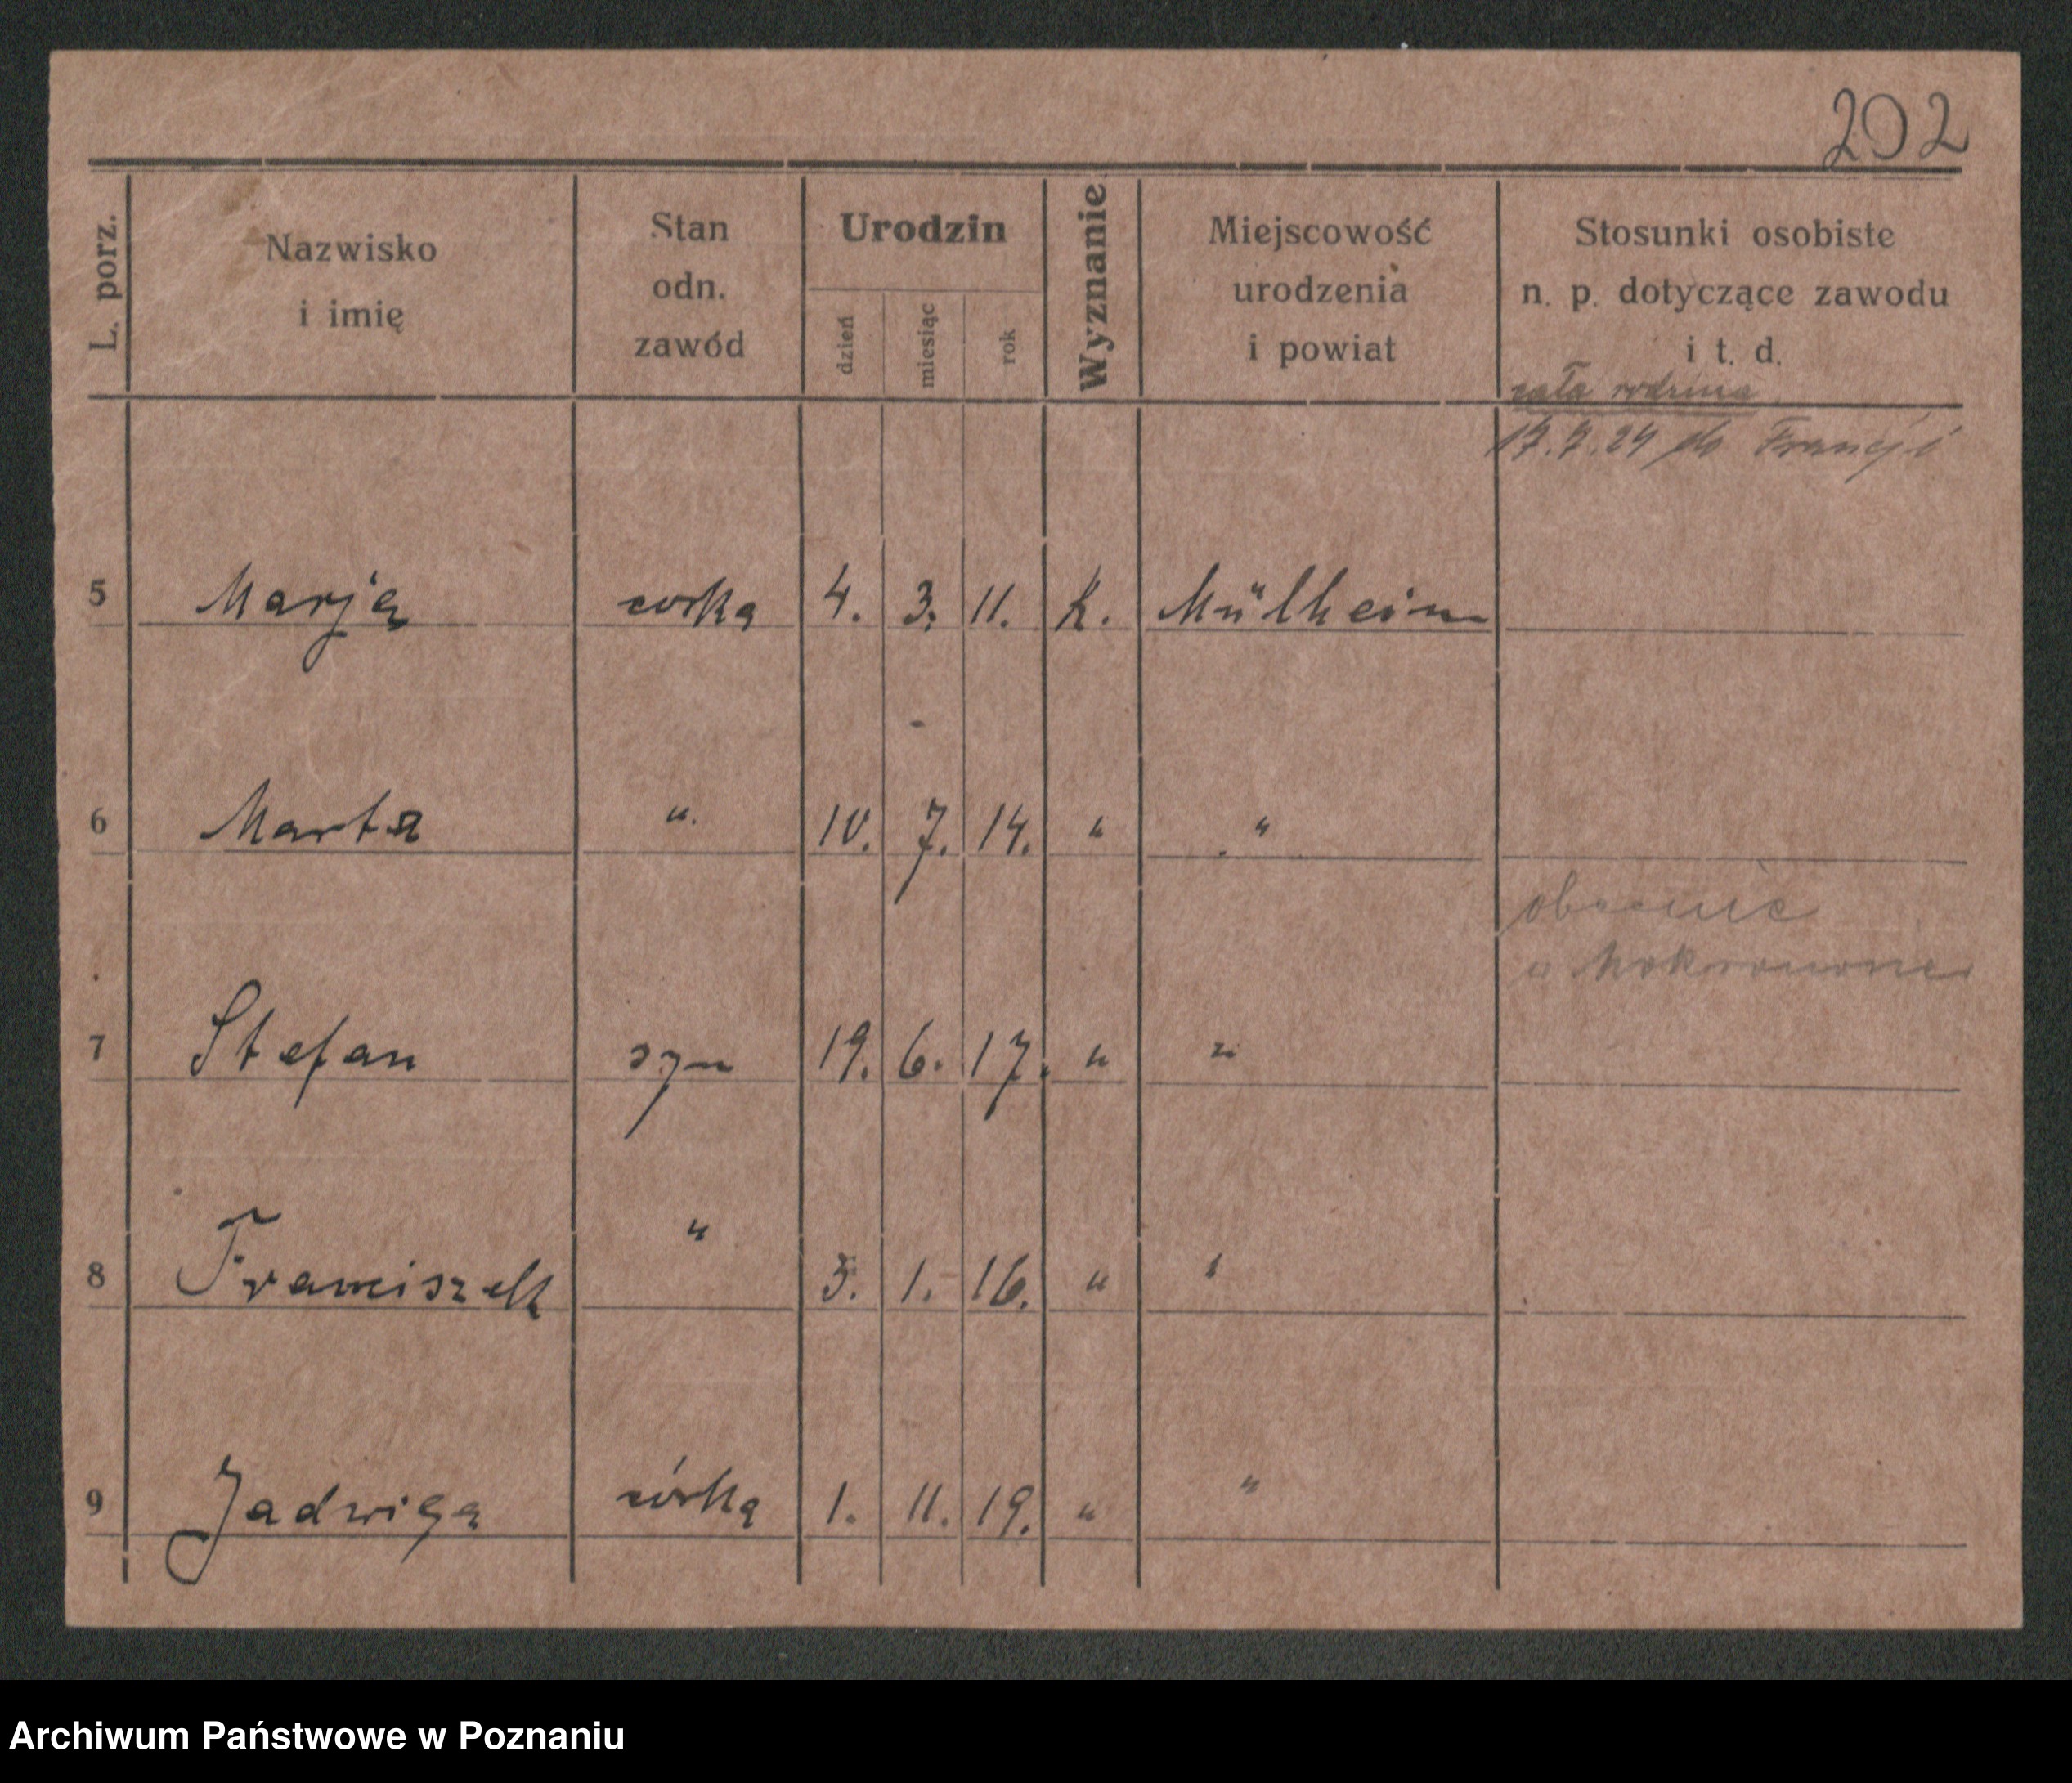 202
L. porz.
Nazwisko
i imię
Stan
odn.
zawód
Urodzin
dzień
miesiąc
rok
Wyznanie
Miejscowość
urodzenia
i powiat
Stosunki osobiste
n. p. dotyczące zawodu
i t. d.
cała rodzina
17.7.24 do Francji
5 Marja corka 4. 3. 11. k. Mülheim
6 Marta " 10. 7. 14. " "
obecnie
w
7 Stefan syn 19. 6. 17. " "
8 Franciszek " 3. 1. 16. " "
9 Jadwiga córka 1. 11. 19. " "
Archiwum Państwowe w Poznaniu